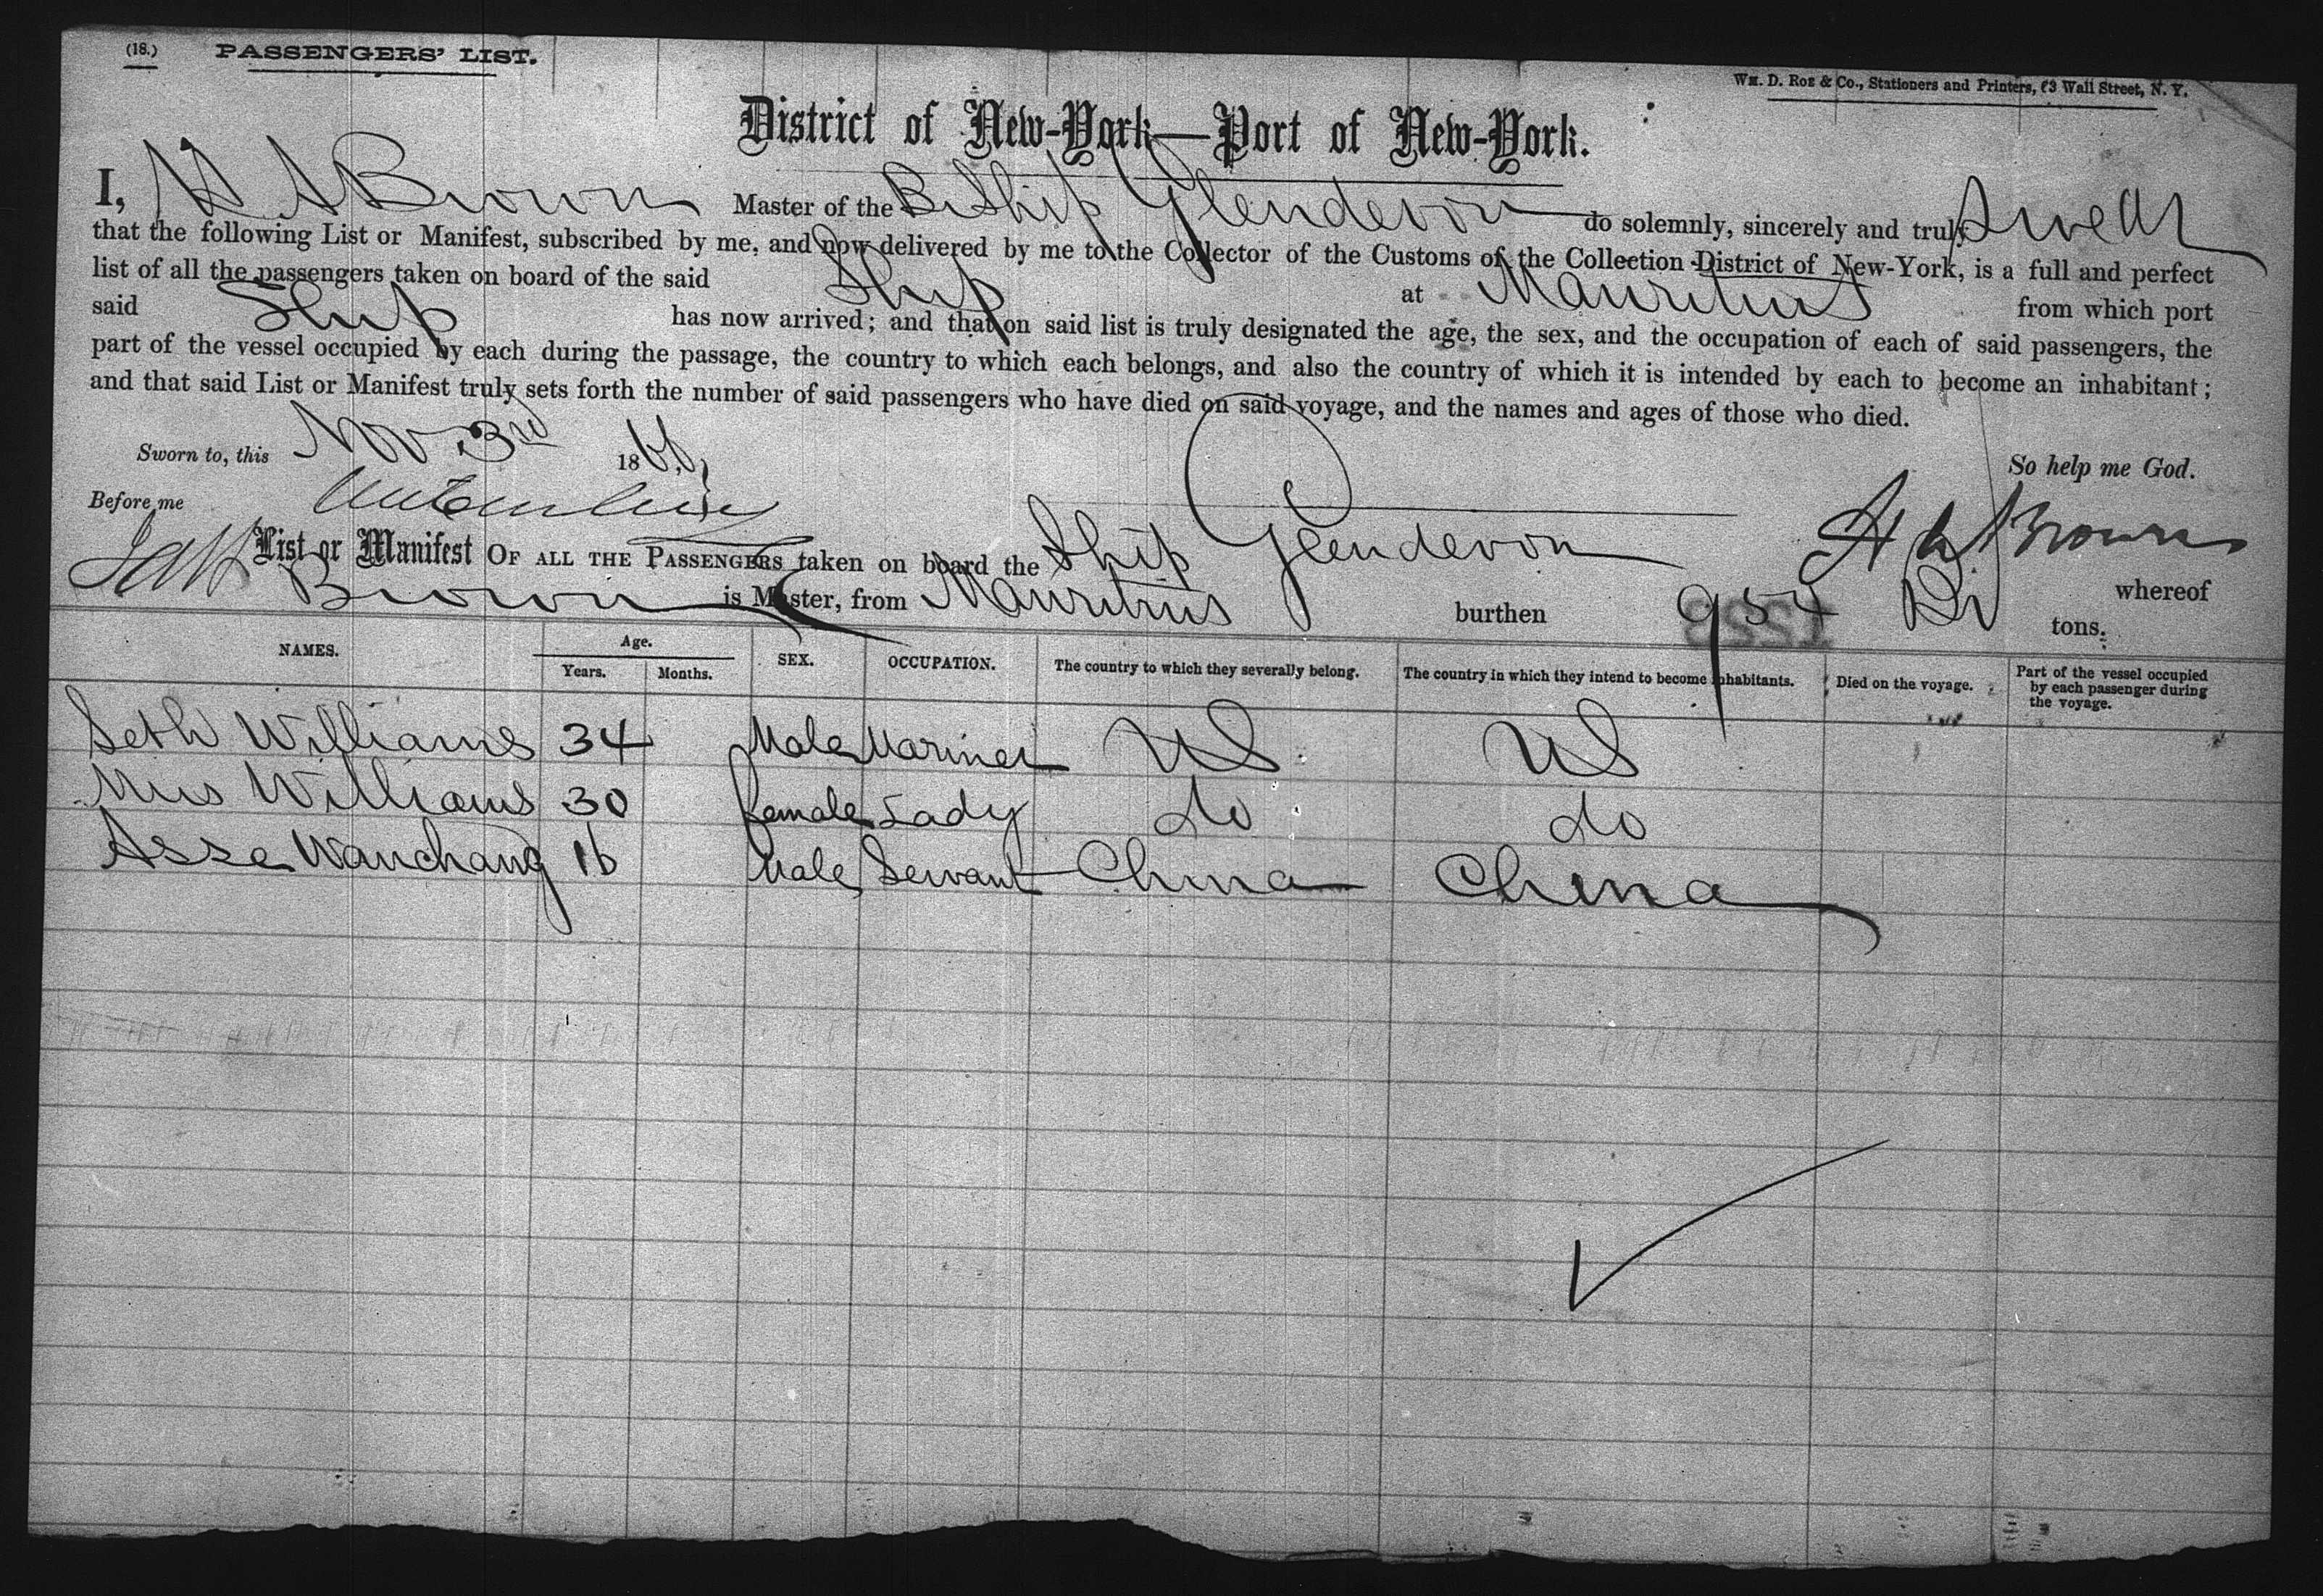 (18.) PASSENGERS' LIST.
WM. D. ROE & Co., Stationers and Printers, 63 Wall Street, N. Y.
District of New-York—Port of New-York.
I, H A Brown Master of the B. Ship Glendevon do solemnly, sincerely and truly Swear
that the following List or Manifest, subscribed by me, and now delivered by me to the Collector of the Customs of the Collection District of New-York, is a full and perfect
list of all the passengers taken on board of the said Ship at Mauritius from which port
said Ship has now arrived; and that on said list is truly designated the age, the sex, and the occupation of each of said passengers, the
part of the vessel occupied by each during the passage, the country to which each belongs, and also the country of which it is intended by each to become an inhabitant;
and that said List or Manifest truly sets forth the number of said passengers who have died on said voyage, and the names and ages of those who died.
Sworn to, this Nov 3rd 1866, So help me God.
Before me
H A Brown
List or Manifest OF ALL THE PASSENGERS taken on board the Ship Glendevon whereof
Brown is Master, from Mauritius burthen 954 tons.
NAMES. Age. Years. Months. SEX. OCCUPATION. The country to which they severally belong. The country in which they intend to become inhabitants. Died on the voyage. Part of the vessel occupied by each passenger during the voyage.
Seth Williams 34 Male Mariner US US
Mrs Williams 30 female Lady do do
Assa Wanchang 16 Male Servant China China